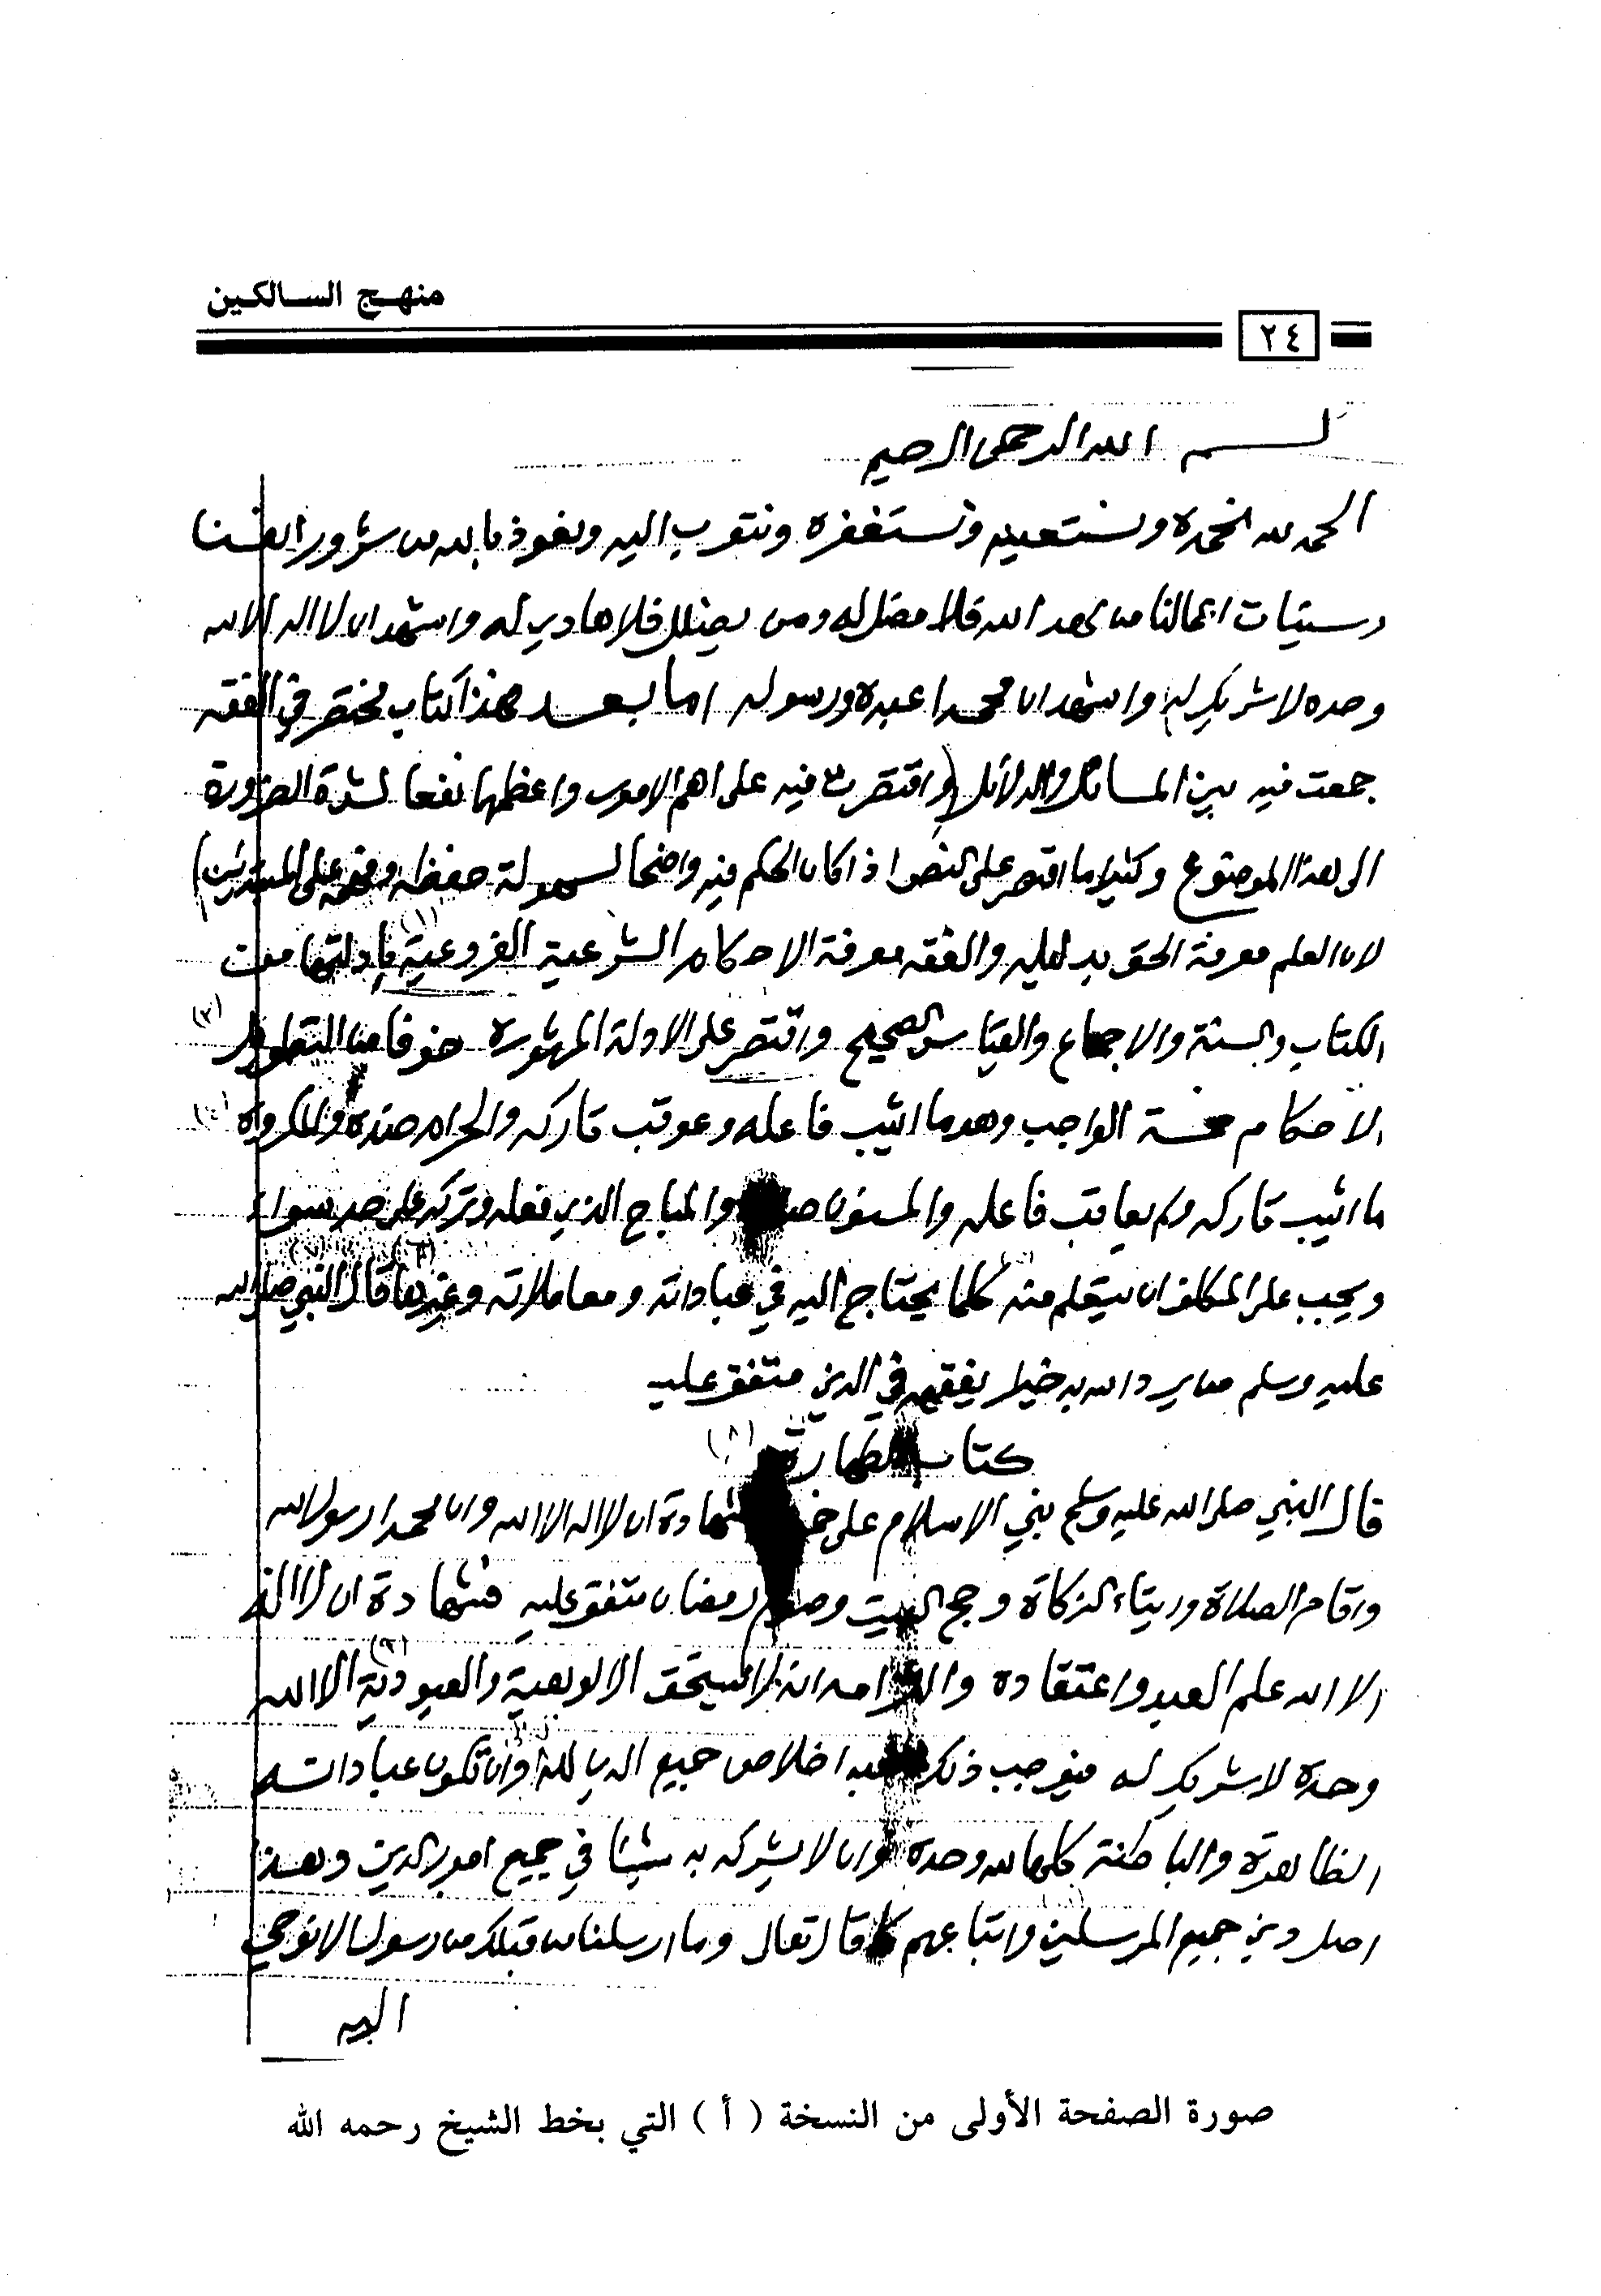 منهج السالكين
٢٤
بسم الله الرحمن الرحيم
الحمد لله نحمده ونستعينه ونستغفره ونتوب اليه ونعوذ بالله من شرور انفسنا
وسيئات اعمالنا من يهد الله فلا مضل له ومن يضلل فلا هادي له واشهد ان لا اله الا الله
وحده لا شريك له واشهد ان محمدا عبده ورسوله اما بعد فهذا كتاب مختصر في الفقه
جمعت فيه بين المسائل والدلائل (واقتصرت فيه على اهم الامور واعظمها نفعا لشدة الضرورة
الى هذا الموضوع وكثيرا ما اقتصر على النص اذا كان الحكم فيه واضحا لسهولة حفظه وفهمه على المبتدئين)
لان العلم معرفة الحق بدليله والفقه معرفة الاحكام الشرعية الفروعية بادلتها من (١)
الكتاب والسنة والاجماع والقياس الصحيح واقتصر على الادلة المشهورة خوفا من التطويل (٢)
الاحكام خمسة الواجب وهو ما اثيب فاعله وعوقب تاركه والحرام ضده والمكروه
ما اثيب تاركه ولم يعاقب فاعله والمسنون والمباح الذي فعله وتركه على حد سواء
ويجب على المكلف ان يتعلم منه كلما يحتاج اليه في عباداته ومعاملاته وغيرها قال النبي صلى الله
عليه وسلم من يرد الله به خيرا يفقهه في الدين متفق عليه
كتاب الطهارة (٨)
قال النبي صلى الله عليه وسلم بني الاسلام على خمس شهادة ان لا اله الا الله وان محمدا رسول الله
واقام الصلاة وايتاء الزكاة وحج البيت وصوم رمضان متفق عليه فشهادة ان لا اله
الا الله علم العبد واعتقاده والتزامه انه لا يستحق الالوهية والعبودية الا الله (٩)
وحده لا شريك له فيوجب ذلك اخلاص جميع الدين لله وان تكون عباداته
الظاهرة والباطنة كلها لله وحده وان لا يشرك به شيئا في جميع امور الدين وهذا
اصل دين جميع المرسلين واتباعهم كما قال تعالى وما ارسلنا من قبلك من رسول الا نوحي
اليه
صورة الصفحة الأولى من النسخة ( أ ) التي بخط الشيخ رحمه الله